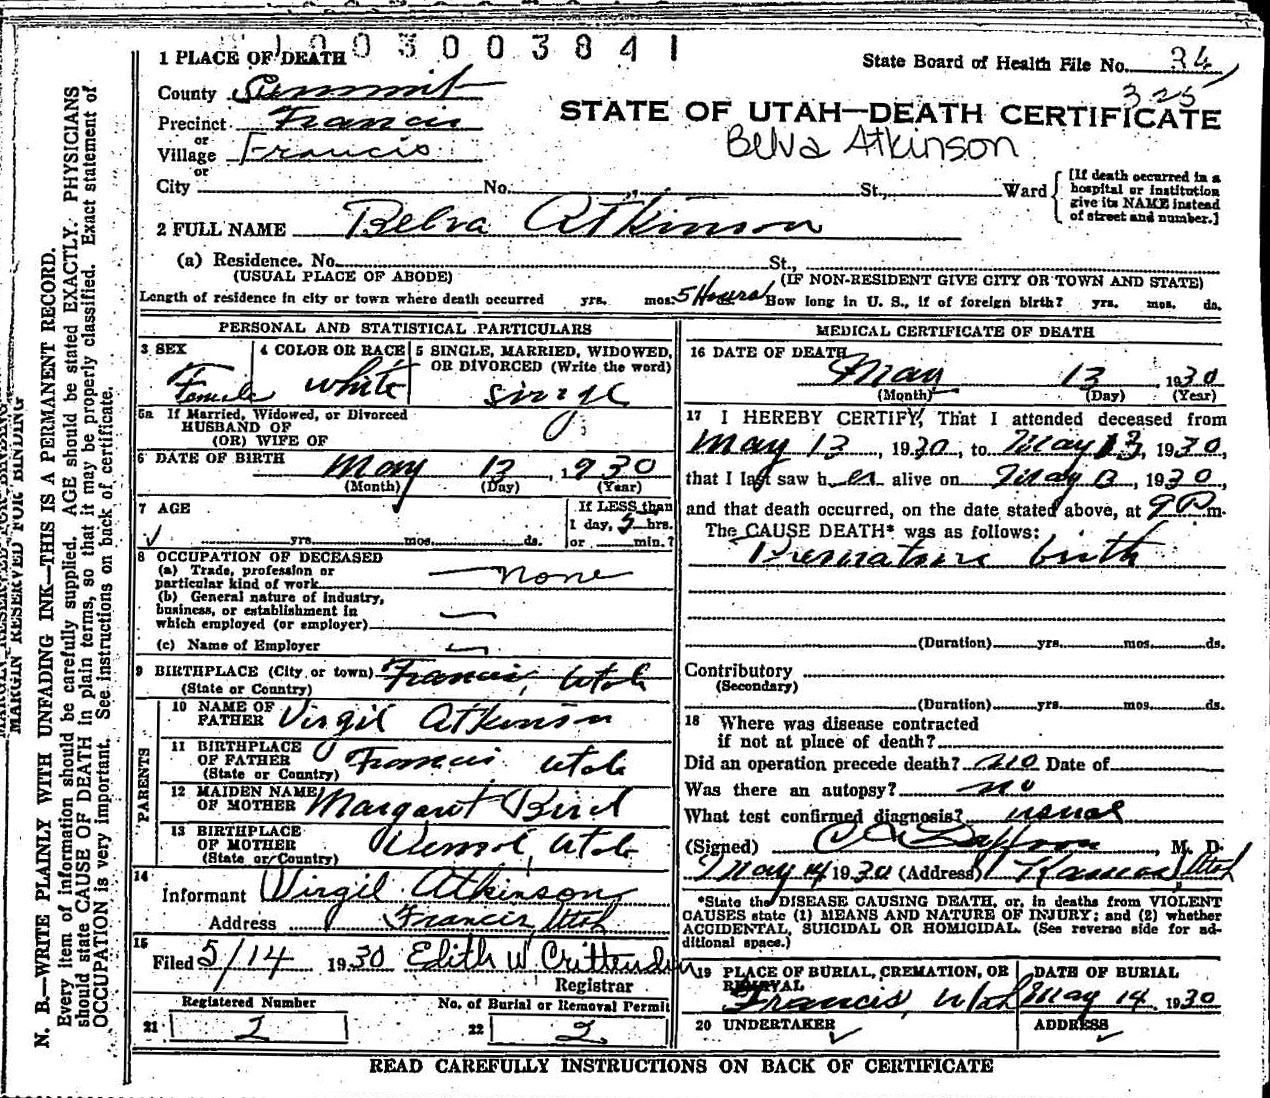 1003003841
1 PLACE OF DEATH
State Board of Health File No. 34
325
County Summit
STATE OF UTAH—DEATH CERTIFICATE
Precinct Francis
or
Village Francis
Belva Atkinson
or
City No. St., Ward
[If death occurred in a
hospital or institution
give its NAME instead
of street and number.]
2 FULL NAME Belva Atkinson
(a) Residence. No. St.,
(USUAL PLACE OF ABODE) (IF NON-RESIDENT GIVE CITY OR TOWN AND STATE)
Length of residence in city or town where death occurred yrs. mos. 5 Hours How long in U. S., if of foreign birth? yrs. mos. ds.
PERSONAL AND STATISTICAL PARTICULARS
3 SEX 4 COLOR OR RACE 5 SINGLE, MARRIED, WIDOWED,
OR DIVORCED (Write the word)
Female white single
5a If Married, Widowed, or Divorced
HUSBAND OF
(OR) WIFE OF
6 DATE OF BIRTH May 13, 1930
(Month) (Day) (Year)
7 AGE If LESS than
1 day, 5 hrs.
yrs. mos. ds. or min.?
8 OCCUPATION OF DECEASED
(a) Trade, profession or
particular kind of work none
(b) General nature of industry,
business, or establishment in
which employed (or employer)
(c) Name of Employer
9 BIRTHPLACE (City or town) Francis, Utah
(State or Country)
PARENTS
10 NAME OF
FATHER Virgil Atkinson
11 BIRTHPLACE
OF FATHER Francis Utah
(State or Country)
12 MAIDEN NAME
OF MOTHER Margaret Bird
13 BIRTHPLACE
OF MOTHER Vernal, Utah
(State or Country)
14
Informant Virgil Atkinson
Address Francis, Utah
15
Filed 5/14 1930 Edith W. Crittenden
Registrar
Registered Number No. of Burial or Removal Permit
21 2 22 2
MEDICAL CERTIFICATE OF DEATH
16 DATE OF DEATH
May 13, 1930
(Month) (Day) (Year)
17 I HEREBY CERTIFY, That I attended deceased from
May 13, 1930, to May 13, 1930,
that I last saw her alive on May 13, 1930,
and that death occurred, on the date stated above, at 9 P m.
The CAUSE DEATH* was as follows:
Premature birth
(Duration) yrs. mos. ds.
Contributory
(Secondary)
(Duration) yrs. mos. ds.
18 Where was disease contracted
if not at place of death?
Did an operation precede death? no Date of
Was there an autopsy? no
What test confirmed diagnosis? usual
(Signed) M. D.
May 14 1930 (Address) Kamas, Utah
*State the DISEASE CAUSING DEATH, or, in deaths from VIOLENT
CAUSES state (1) MEANS AND NATURE OF INJURY; and (2) whether
ACCIDENTAL, SUICIDAL OR HOMICIDAL. (See reverse side for ad-
ditional space.)
19 PLACE OF BURIAL, CREMATION, OR
REMOVAL
Francis, Utah
DATE OF BURIAL
May 14 1930
20 UNDERTAKER ADDRESS
READ CAREFULLY INSTRUCTIONS ON BACK OF CERTIFICATE
MARGIN RESERVED FOR BINDING
N. B.—WRITE PLAINLY WITH UNFADING INK—THIS IS A PERMANENT RECORD.
Every item of information should be carefully supplied. AGE should be stated EXACTLY. PHYSICIANS
should state CAUSE OF DEATH in plain terms, so that it may be properly classified. Exact statement of
OCCUPATION is very important. See instructions on back of certificate.